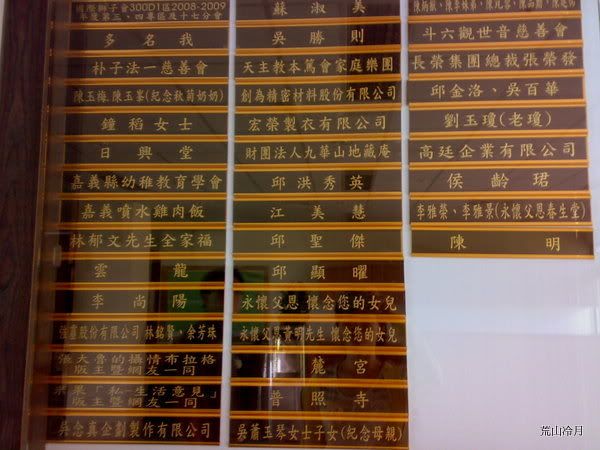 國際獅子會300D1區2008-2009
年度第三、四專區及十七分會
多名我
朴子法一慈善會
陳玉梅.陳玉峯(紀念秋菊奶奶)
鐘稻女士
日興堂
嘉義縣幼稚教育學會
嘉義噴水雞肉飯
林郁文先生全家福
雲龍
李尚陽
股份有限公司 林銘賢、余芳珠
張天魯的攝情布拉格
版主暨網友一同
果「私-生活意見」
版主暨網友一同
吳念真企劃製作有限公司
蘇淑美
吳勝則
天主教本篤會家庭樂園
創為精密材料股份有限公司
宏榮製衣有限公司
財團法人九華山地藏庵
邱洪秀英
江美慧
邱聖傑
邱顯曜
永懷父恩 懷念您的女兒
永懷父恩黃明先生 懷念您的女兒
麓宮
普照寺
吳蕭玉琴女士子女(紀念母親)
斗六觀世音慈善會
長榮集團總裁張榮發
邱金洛、吳百華
劉玉瓊(老瓊)
高廷企業有限公司
侯齡珺
李雅榮、李雅景(永懷父恩春生堂)
陳明
荒山冷月